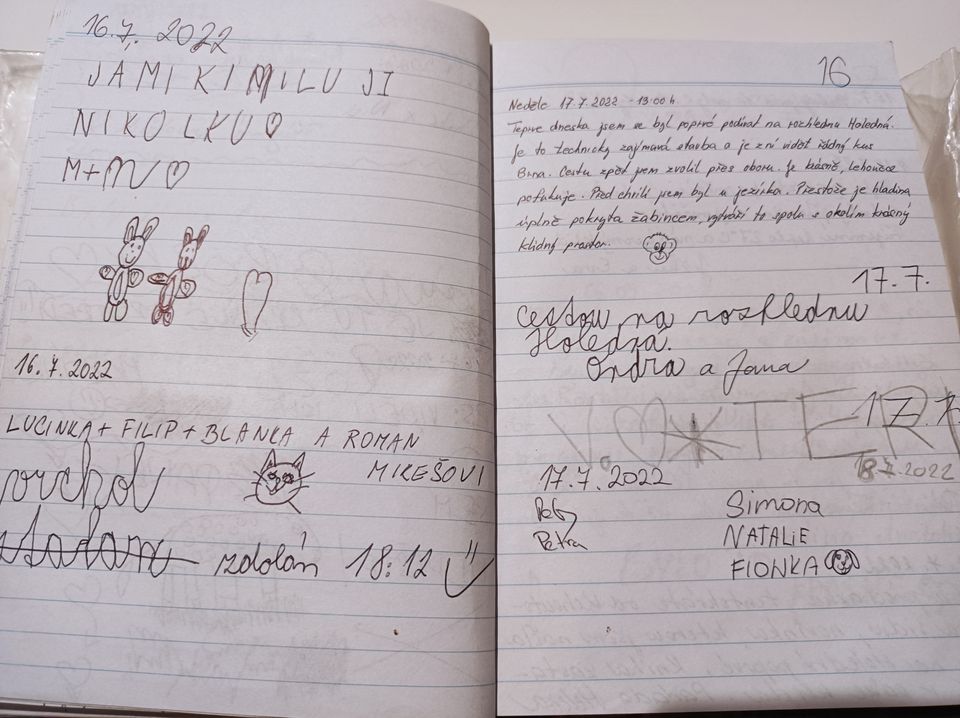 16.7. 2022
JÁ MIKI MILUJI
NIKOLKU
M+N
16.7.2022
LUCINKA + FILIP + BLANKA A ROMAN
MIKEŠOVI
vrchol
zdolán 18:12
16
Neděle 17.7.2022 - 13:00 h
Teprve dneska jsem se byl poprvé podívat na rozhlednu Holedná.
Je to technicky zajímavá stavba a je z ní vidět řádný kus
Brna. Cestu zpět jsem zvolil přes oboru. Je krásně, lehoučce
pofukuje. Před chvílí jsem byl u jezírka. Přestože je hladina
úplně pokryta žabincem, vytváří to spolu s okolím krásný
klidný prostor.
17.7.
Cestou na rozhlednu
Holedná.
Ondra a Jana
17.7.
18.7.2022
17.7.2022
Petra
Simona
NATALIE
FIONKA